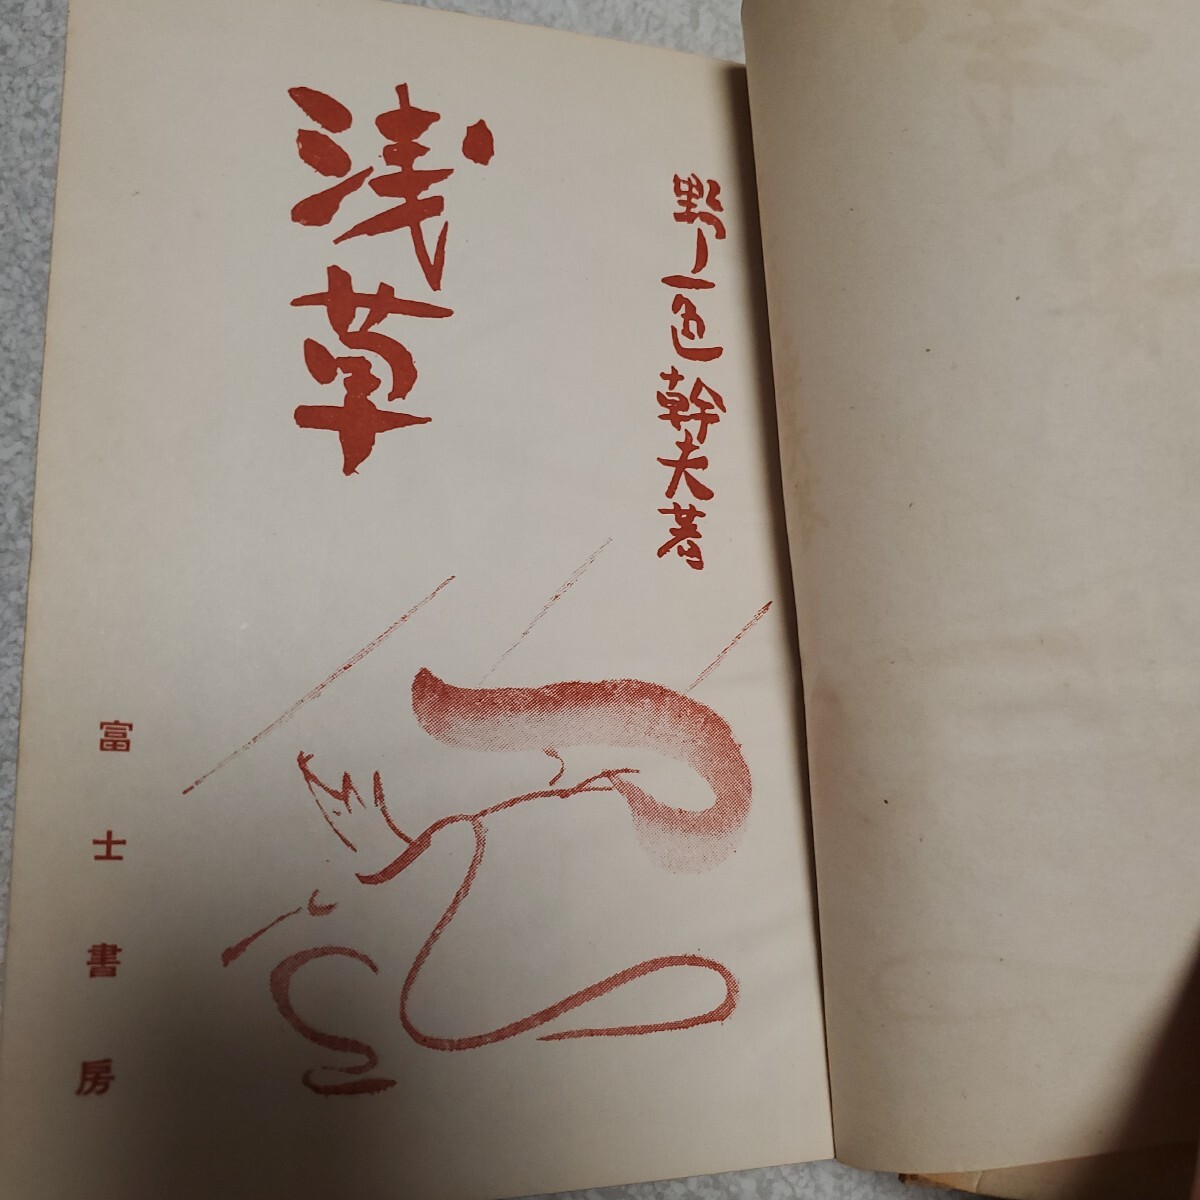 野一色幹夫著
浅草
富士書房